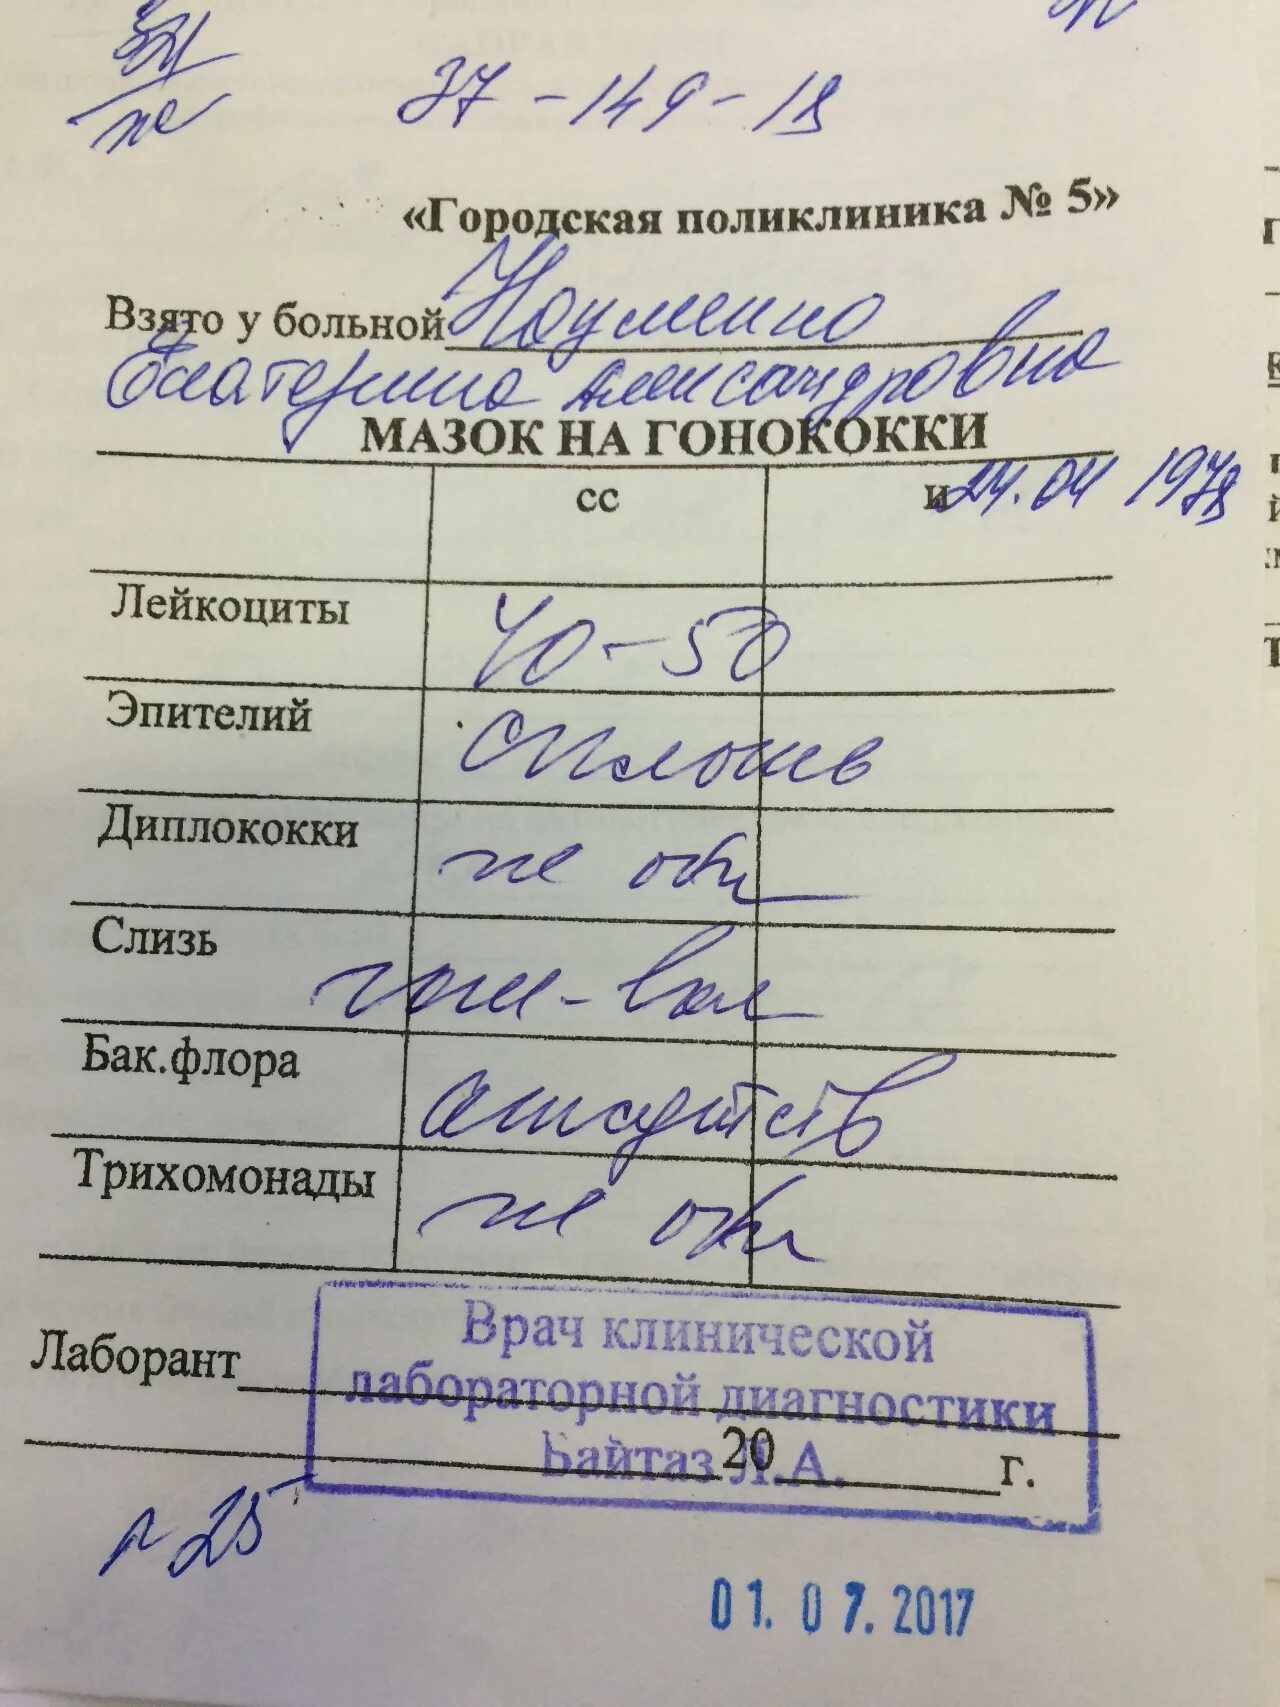 37-149-18
«Городская поликлиника № 5»
Взято у больной Науменко
Екатерина Александровна
МАЗОК НА ГОНОКОККИ
сс и 24.04 1978
Лейкоциты 40-50
Эпителий сплошь
Диплококки не обн
Слизь
Бак.флора отсутств
Трихомонады не обн
Врач клинической
Лаборант лабораторной диагностики
Байтаз Л.А. 20 г.
25
01.07.2017